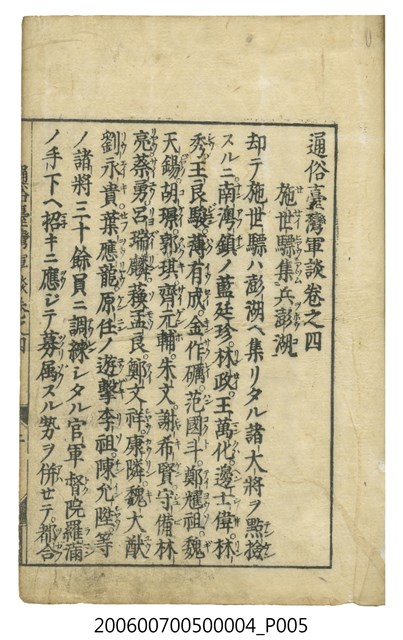 通俗臺灣軍談卷之四
施世驃集兵澎湖
却テ施世驃ハ澎湖ヘ集リタル諸大將ヲ點撿
スルニ南澳鎮ノ藍廷珍林政王萬化邊士偉林
秀王良駿薄有成金作礪范國斗鄭耀祖魏
天錫胡璟郭琪齊元輔朱文謝希賢守備林
亮蔡勇呂瑞麟蘓孟良鄭文祥康隣魏大猷
劉永貴葉應龍原任ノ遊擊李祖陳允陞等
ノ諸將三十餘員ニ調練シタル官軍督院羅滿
ノ手下ヘ招キニ應ジテ募属スル勢ヲ併セテ都合
200600700500004_P005